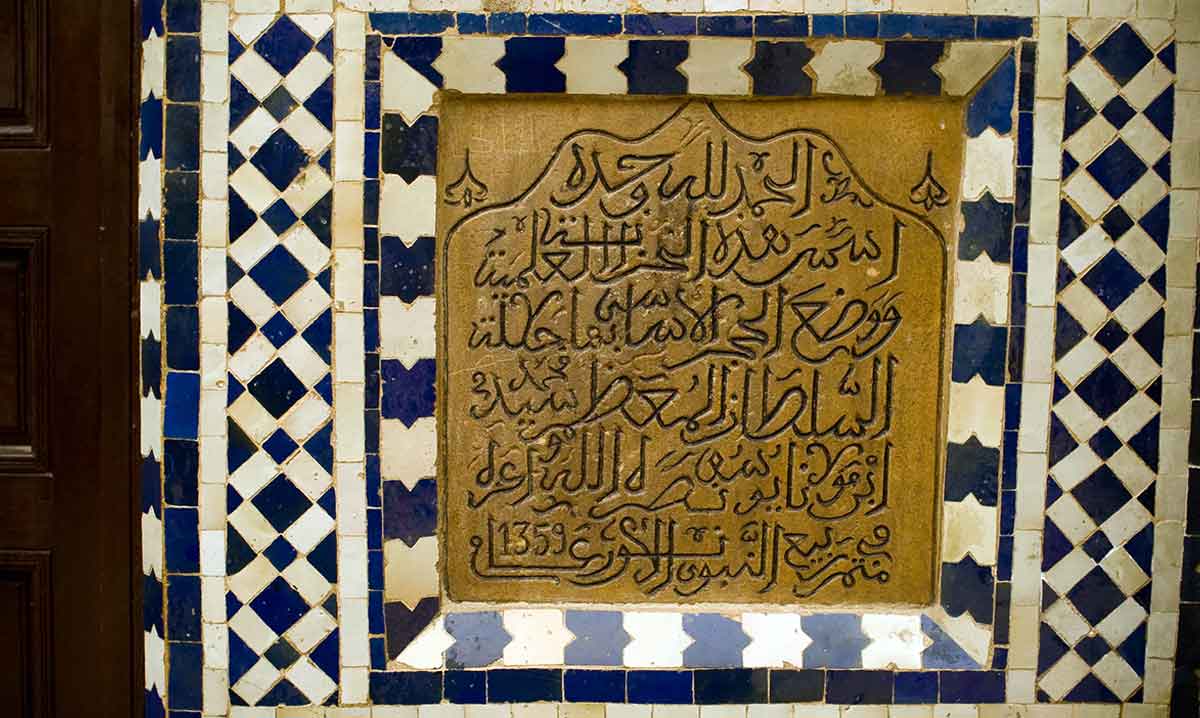 الحمد لله وحده
اسست هذه الخزانة العلمية
ووضع الحجر الاساسي بها جلالة
السلطان المعظم سيدي محمد
ابن مولانا يوسف نصره الله واعزه
في متم ربيع النبوي الانور عام 1359